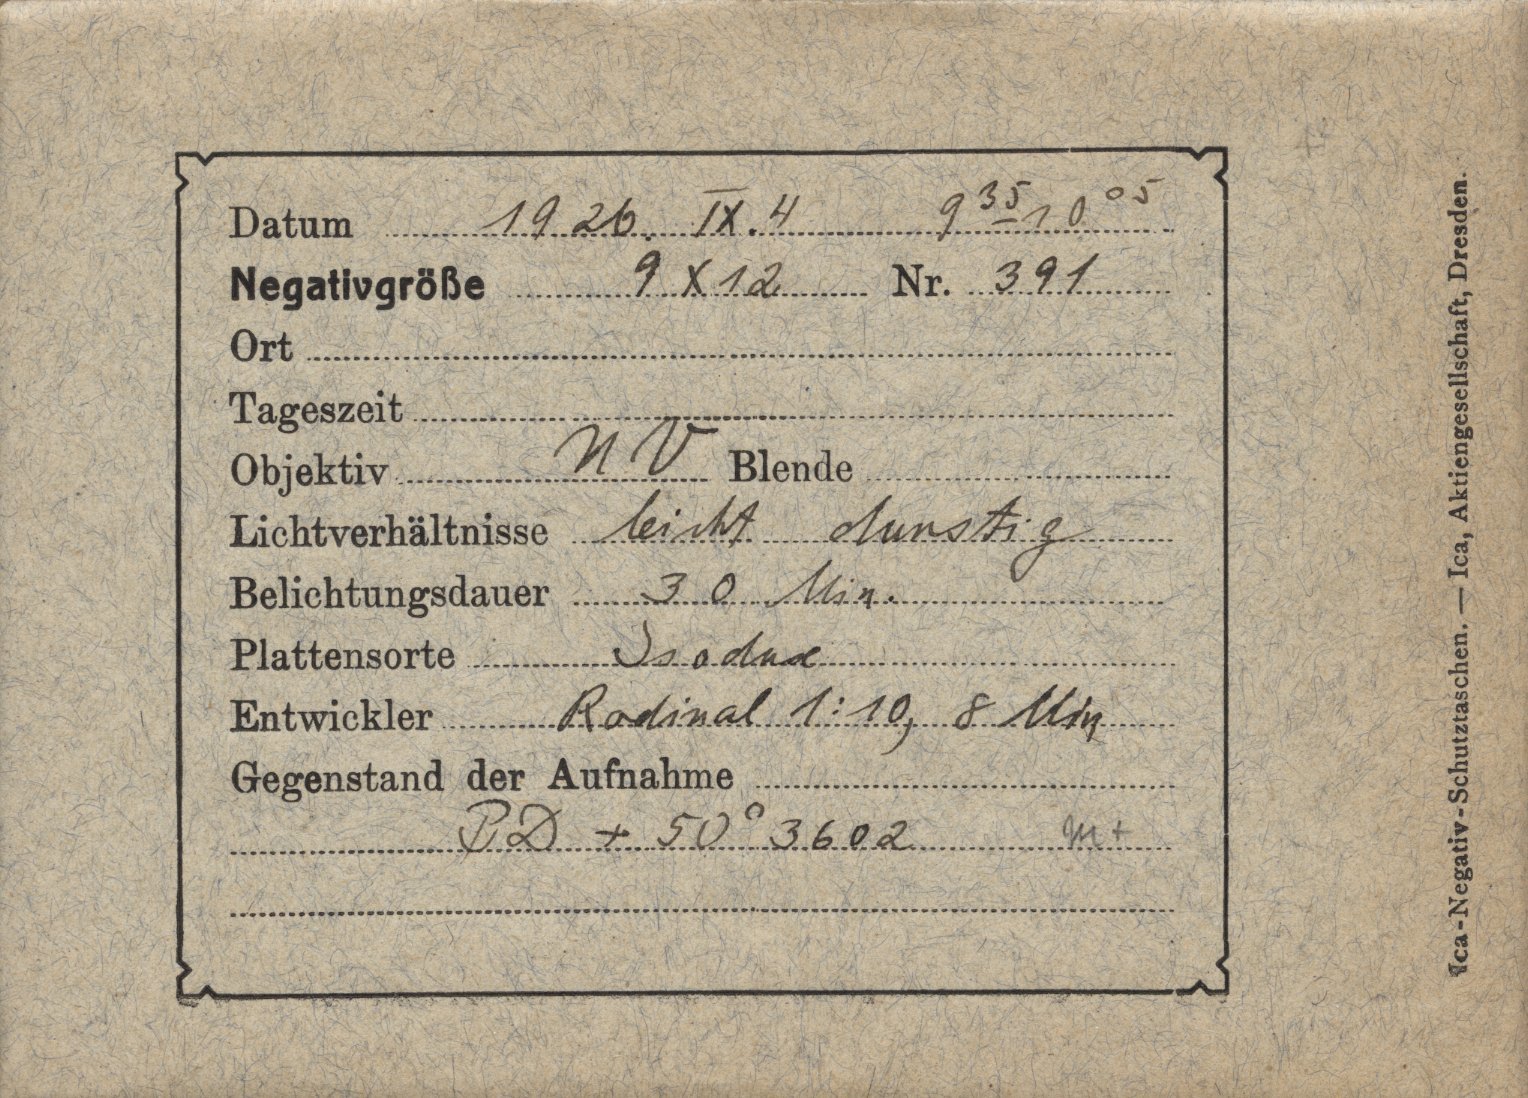 Datum 1926. IX. 4 9 35 – 10 05
Negativgröße 9 X 12 Nr. 391
Ort
Tageszeit
Objektiv NV Blende
Lichtverhältnisse leicht dunstig
Belichtungsdauer 30 Min.
Plattensorte Isodux
Entwickler Rodinal 1:10, 8 Min
Gegenstand der Aufnahme
BD + 50° 3602 m+
Ica-Negativ-Schutztaschen. — Ica, Aktiengesellschaft, Dresden.